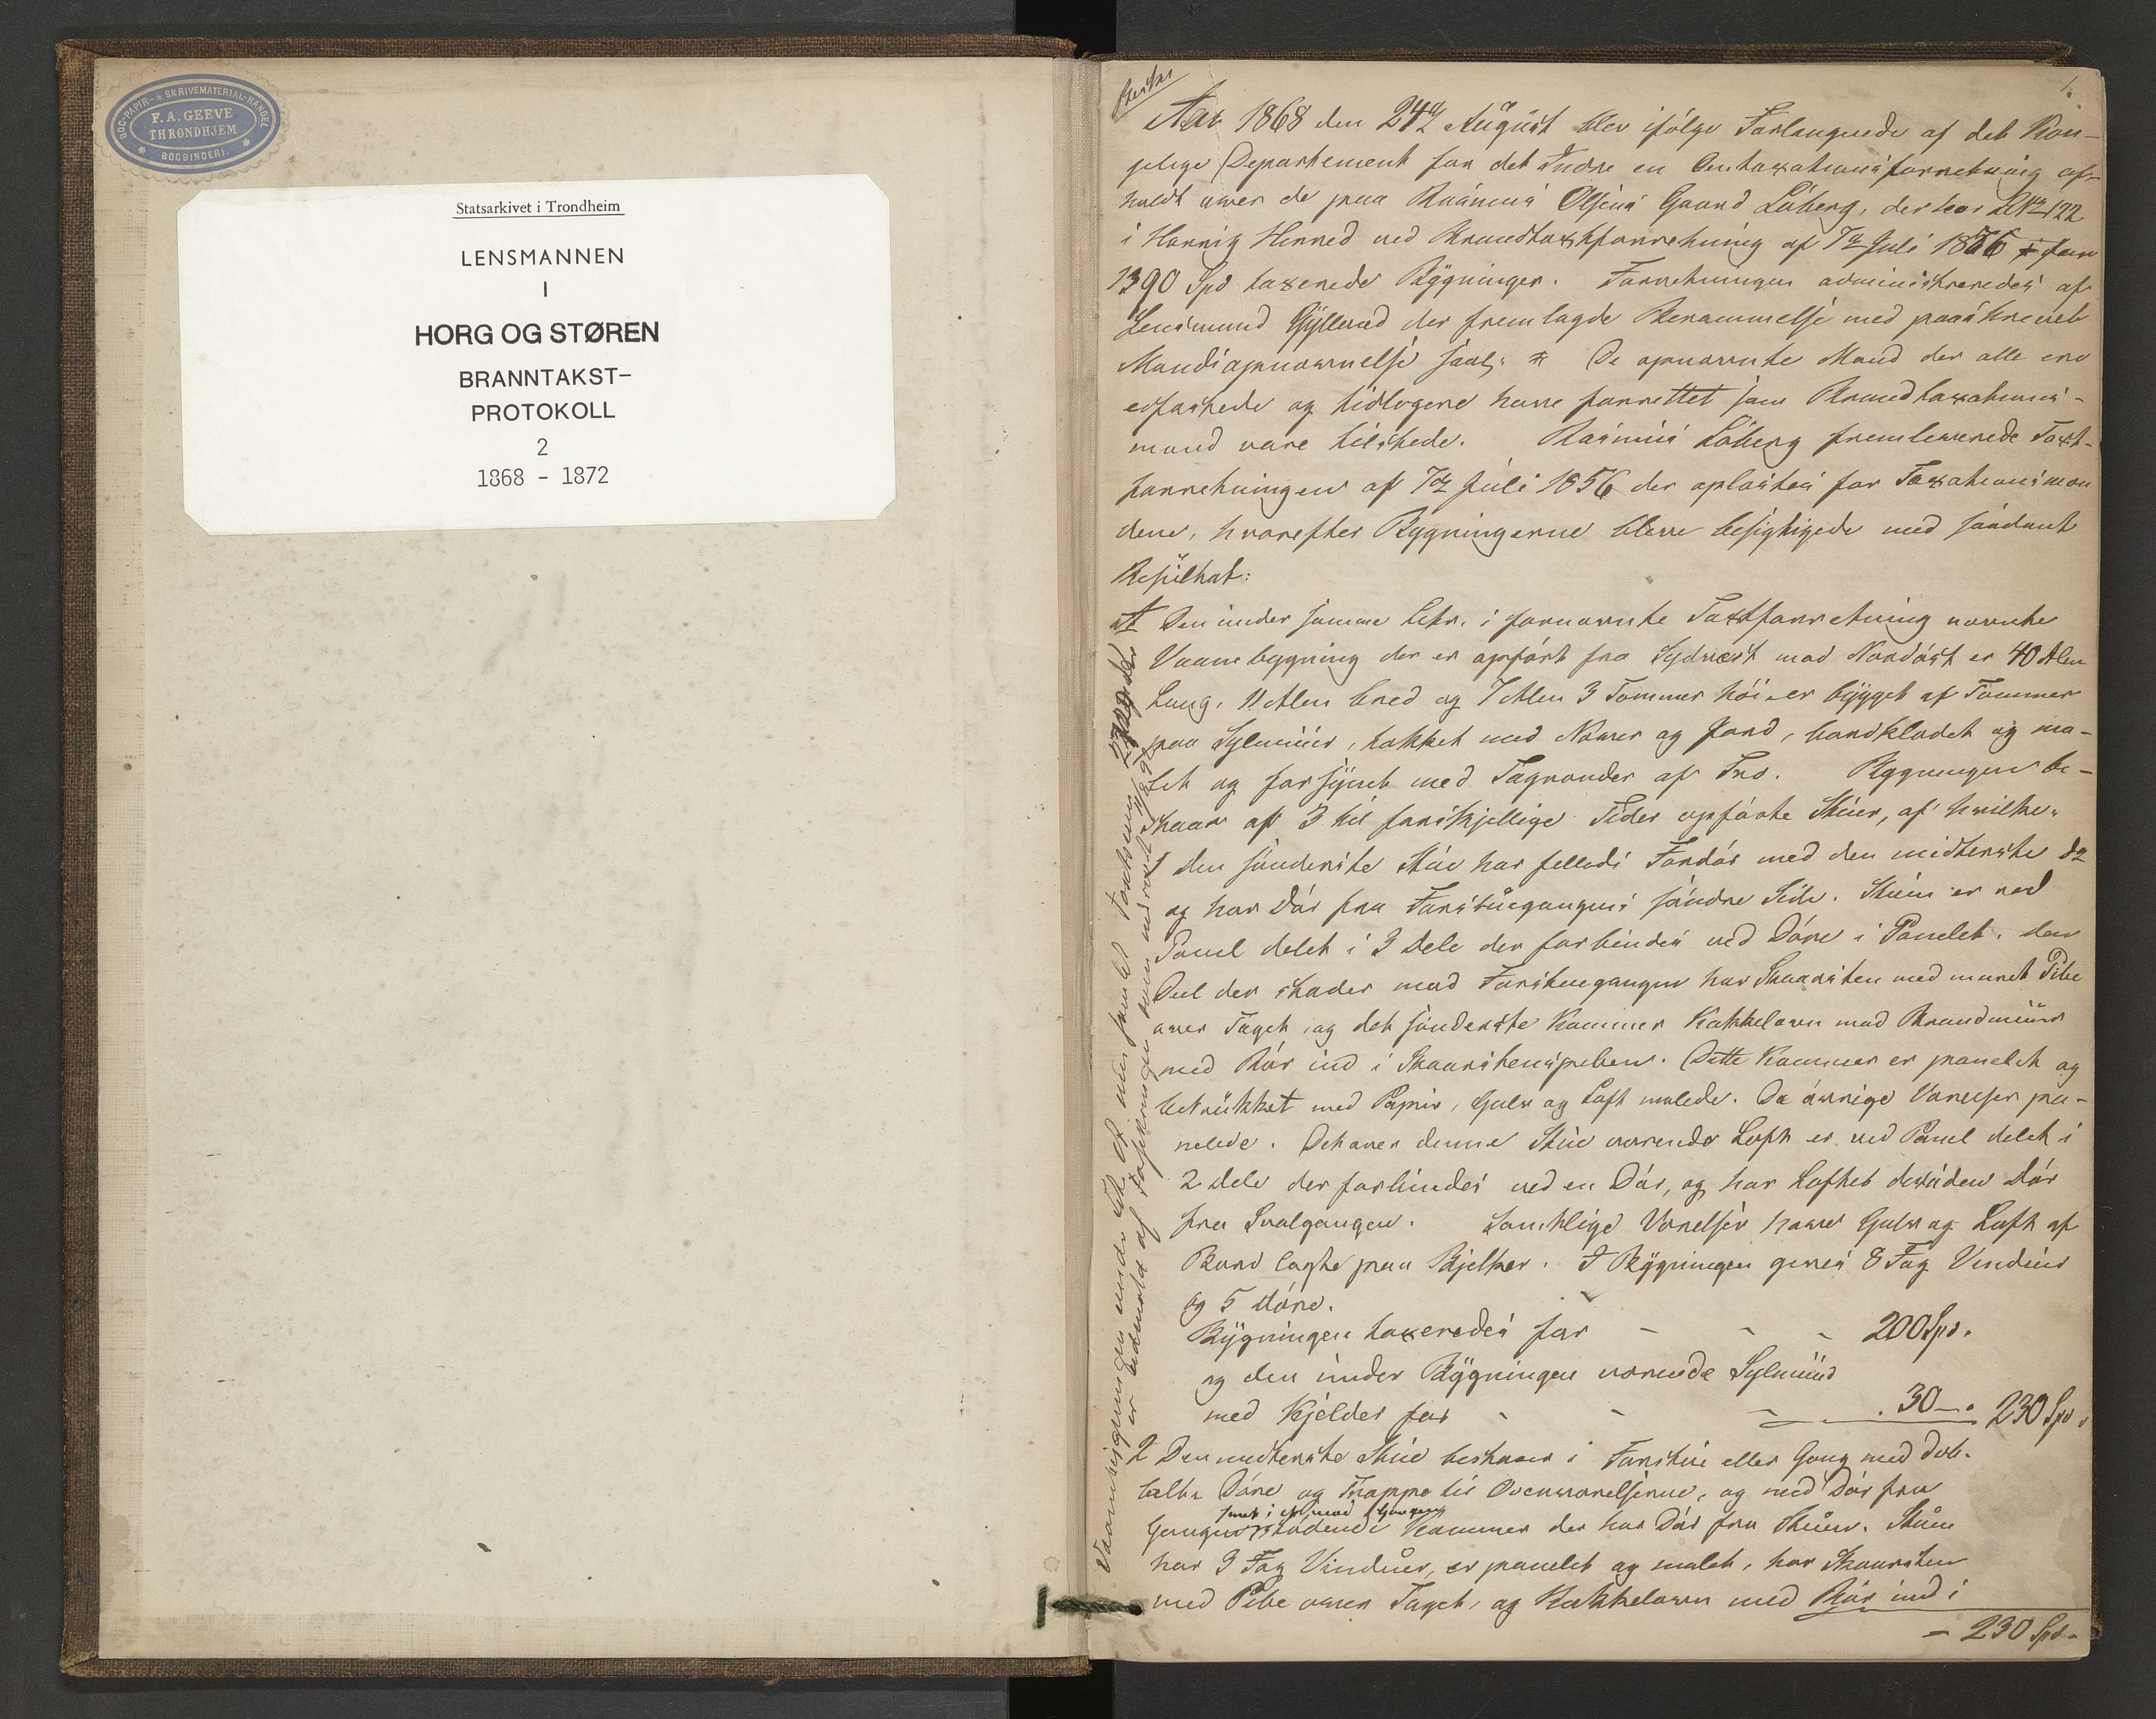 BOG-PAPIR- & SKRIVEMATERIAL-HANDEL
F. A. GEEVE
THRONDHJEM
BOGBINDERI.
Statsarkivet i Trondheim
LENSMANNEN
I
HORG OG STØREN
BRANNTAKST-
PROTOKOLL
2
1868 - 1872
1.
Aar 1868 den 24de August blev ifølge Forlangende af det Kon-
gelige Departement for det Indre en Omtaxationsforretning af-
holdt over de paa Rasmus Olsens Gaard Løberg, der har LNo 122
i Herred ved Brandtaxtforretning af 7de Juli 1856 for
1390 Spd taxerede Bygninger. Forretningen administreredes af
Lensmand der fremlagde Berammelse med paaskrevet
Mandsopnævnelse De opnævnte Mænd der alle ere
edfæstede og tidligere have forrettet som Brandtaxations-
mænd vare tilstede. Rasmus Løberg fremleverede Taxt-
forretningen af 7de Juli 1856 der oplæstes for Taxationsmæn
dene, hvorefter Bygningerne bleve besigtigede med saadant
Resultat:
A Den under samme Litr. i fornævnte Taxtforretning nævnte
Vaanebygning der er opført fra Sydvest mod Nordøst er 40 Alen
Lang, 11 Alen bred og 7 Alen 3 Tommer høi er bygget af Tømmer
paa Sylmuur, tækket med Næver og Jord, bordklædet og ma-
let og forsynet med Tagrender af Træ. Bygningen be-
staar af 3 til forskjellige Tider opførte Stuer, af hvilke:
1 den søndenste Stue har fælleds Fordør med den midterste do
og har Dør fra Forstuegangens søndre Side. Stuen er ved
Panel delet i 3 Dele der forbindes ved Døre i Panelet. Den
Deel der støder mod Forstuegangen har Skaarsten med muret Pibe
over Taget, og det søndenste Kammer Kakkelovn med Brandmuur
med Rør ind i Skaarstenspiben. Dette Kammer er panelet og
betrukket med Papir, Gulv og Loft malede. De øvrige Værelser pa-
nelede. Det over denne Stue værende Loft er ved Panel delet i
2 dele der forbindes ved en Dør, og har Loftet desuden Dør
fra Svalgangen. Samtlige Værelser have Gulv og Loft af
Bord lagte paa Bjelker. I Bygningen gives 8 Fag Vinduer
og 5 Døre.
Bygningen taxeredes for - - - 200 Spd.
og den under Bygningen værende Sylmuur
med Kjelder for - - - 30 - 230 Spd.
2 Den midterste Stue bestaaer i Forstue eller Gang med dob-
belte Døre og Trappe til Ovenværelserne, og med Dør fra
Gangen Kammer der har Dør fra Stuen. Stuen
har 3 Fag Vinduer, er panelet og malet, har Skaarsten
med Pibe over Taget, og Kakkelovn med Rør ind i
- 230 Spd.